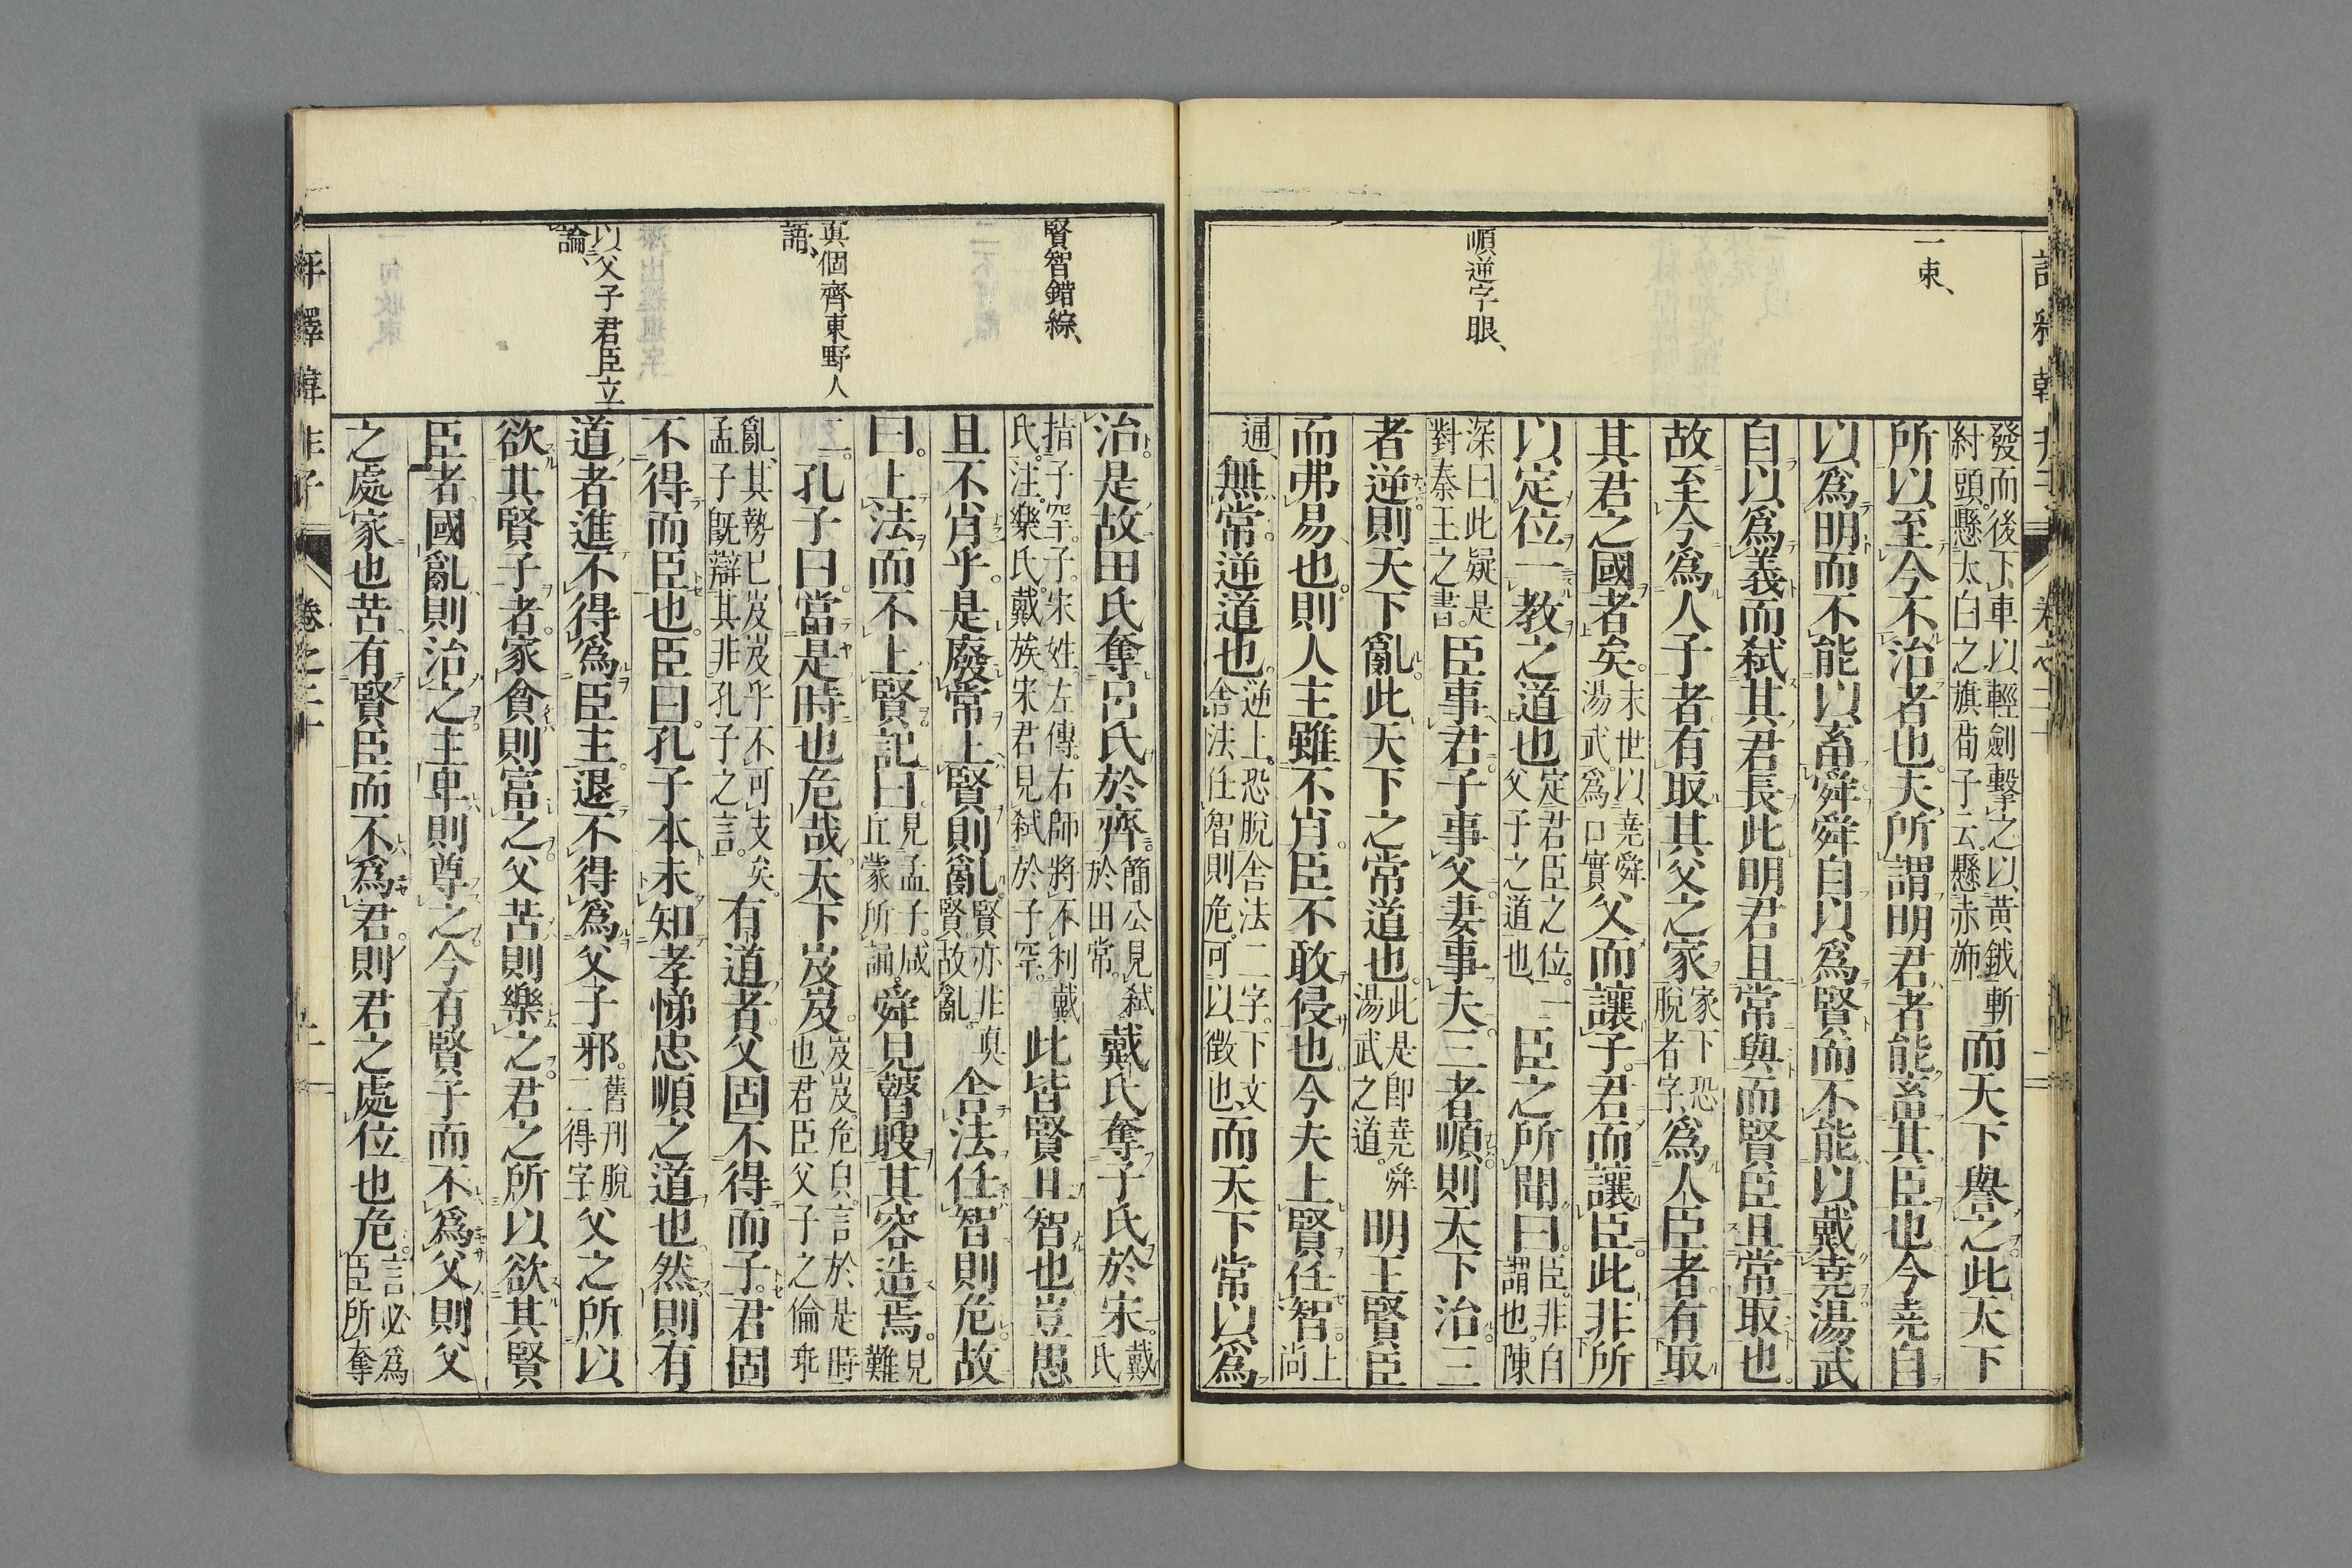 一束、
順逆字眼、
發而後下車以輕劍擊之以黃鉞斬
紂頭懸太白之旗荀子云懸赤旆而天下譽之此天下
所以至今不治者也夫所謂明君者能畜其臣也今堯自
以爲明而不能以畜舜舜自以爲賢而不能以戴堯湯武
自以爲義而弑其君長此明君且常與而賢臣且常取也
故至今爲人子者有取其父之家家下恐脫者字爲人臣者有取
其君之國者矣末世以堯舜湯武爲口實父而讓子君而讓臣此非所
以定位一教之道也定君臣之位一父子之道也臣之所聞曰臣非自謂也陳
深曰此疑是對秦王之書臣事君子事父妻事夫三者順則天下治三
者逆則天下亂此天下之常道也此是卽堯舜湯武之道明王賢臣
而弗易也則人主雖不肖臣不敢侵也今夫上賢任智上尚
通無常逆道也逆上恐脫舍法二字下文舍法任智則危可以徵也而天下常以爲
賢智錯綜、
眞個齊東野人
語、
以父子君臣立
論、
治是故田氏奪呂氏於齊簡公見弑於田常戴氏奪子氏於宋戴氏
指子罕子宋姓左傳右師將不利戴氏注樂氏戴族宋君見弑於子罕此皆賢且智也豈愚
且不肖乎是廢常上賢則亂賢亦非眞賢故亂舍法任智則危故
曰上法而不上賢記曰見孟子咸丘蒙所論舜見瞽瞍其容造焉見難
二孔子曰當是時也危哉天下岌岌岌岌危皃言於是時也君臣父子之倫乖
亂其勢已岌岌乎不可支矣孟子旣辯其非孔子之言有道者父固不得而子君固
不得而臣也臣曰孔子本未知孝悌忠順之道也然則有
道者進不得爲臣主退不得爲父子邪舊刊脫二得字父之所以
欲其賢子者家貪則富之父苦則樂之君之所以欲其賢
臣者國亂則治之主卑則尊之今有賢子而不爲父則父
之處家也苦有賢臣而不爲君則君之處位也危言必爲臣所奪